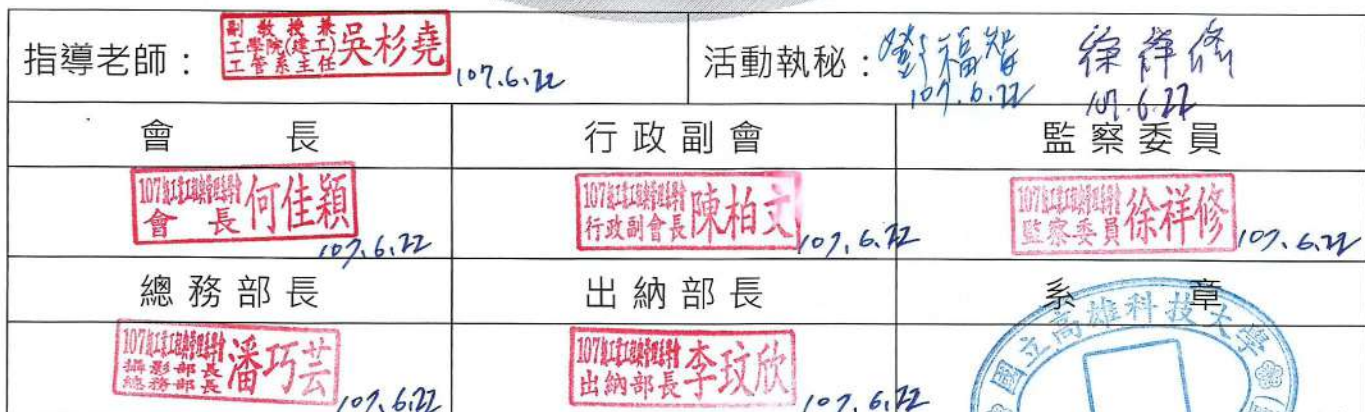 指導老師： 副教授兼工學院(建工)工管系主任 吳杉堯 107.6.22 活動執秘： 劉福智 107.6.22 徐祥修 107.6.22
會長 行政副會 監察委員
107級工業工程與管理系學會 會長 何佳穎 107.6.22 107級工業工程與管理系學會 行政副會長 陳柏文 107.6.22 107級工業工程與管理系學會 監察委員 徐祥修 107.6.22
總務部長 出納部長 系章
107級工業工程與管理系學會 攝影部長 總務部長 潘巧芸 107.6.22 107級工業工程與管理系學會 出納部長 李玟欣 107.6.22 國立高雄科技大學